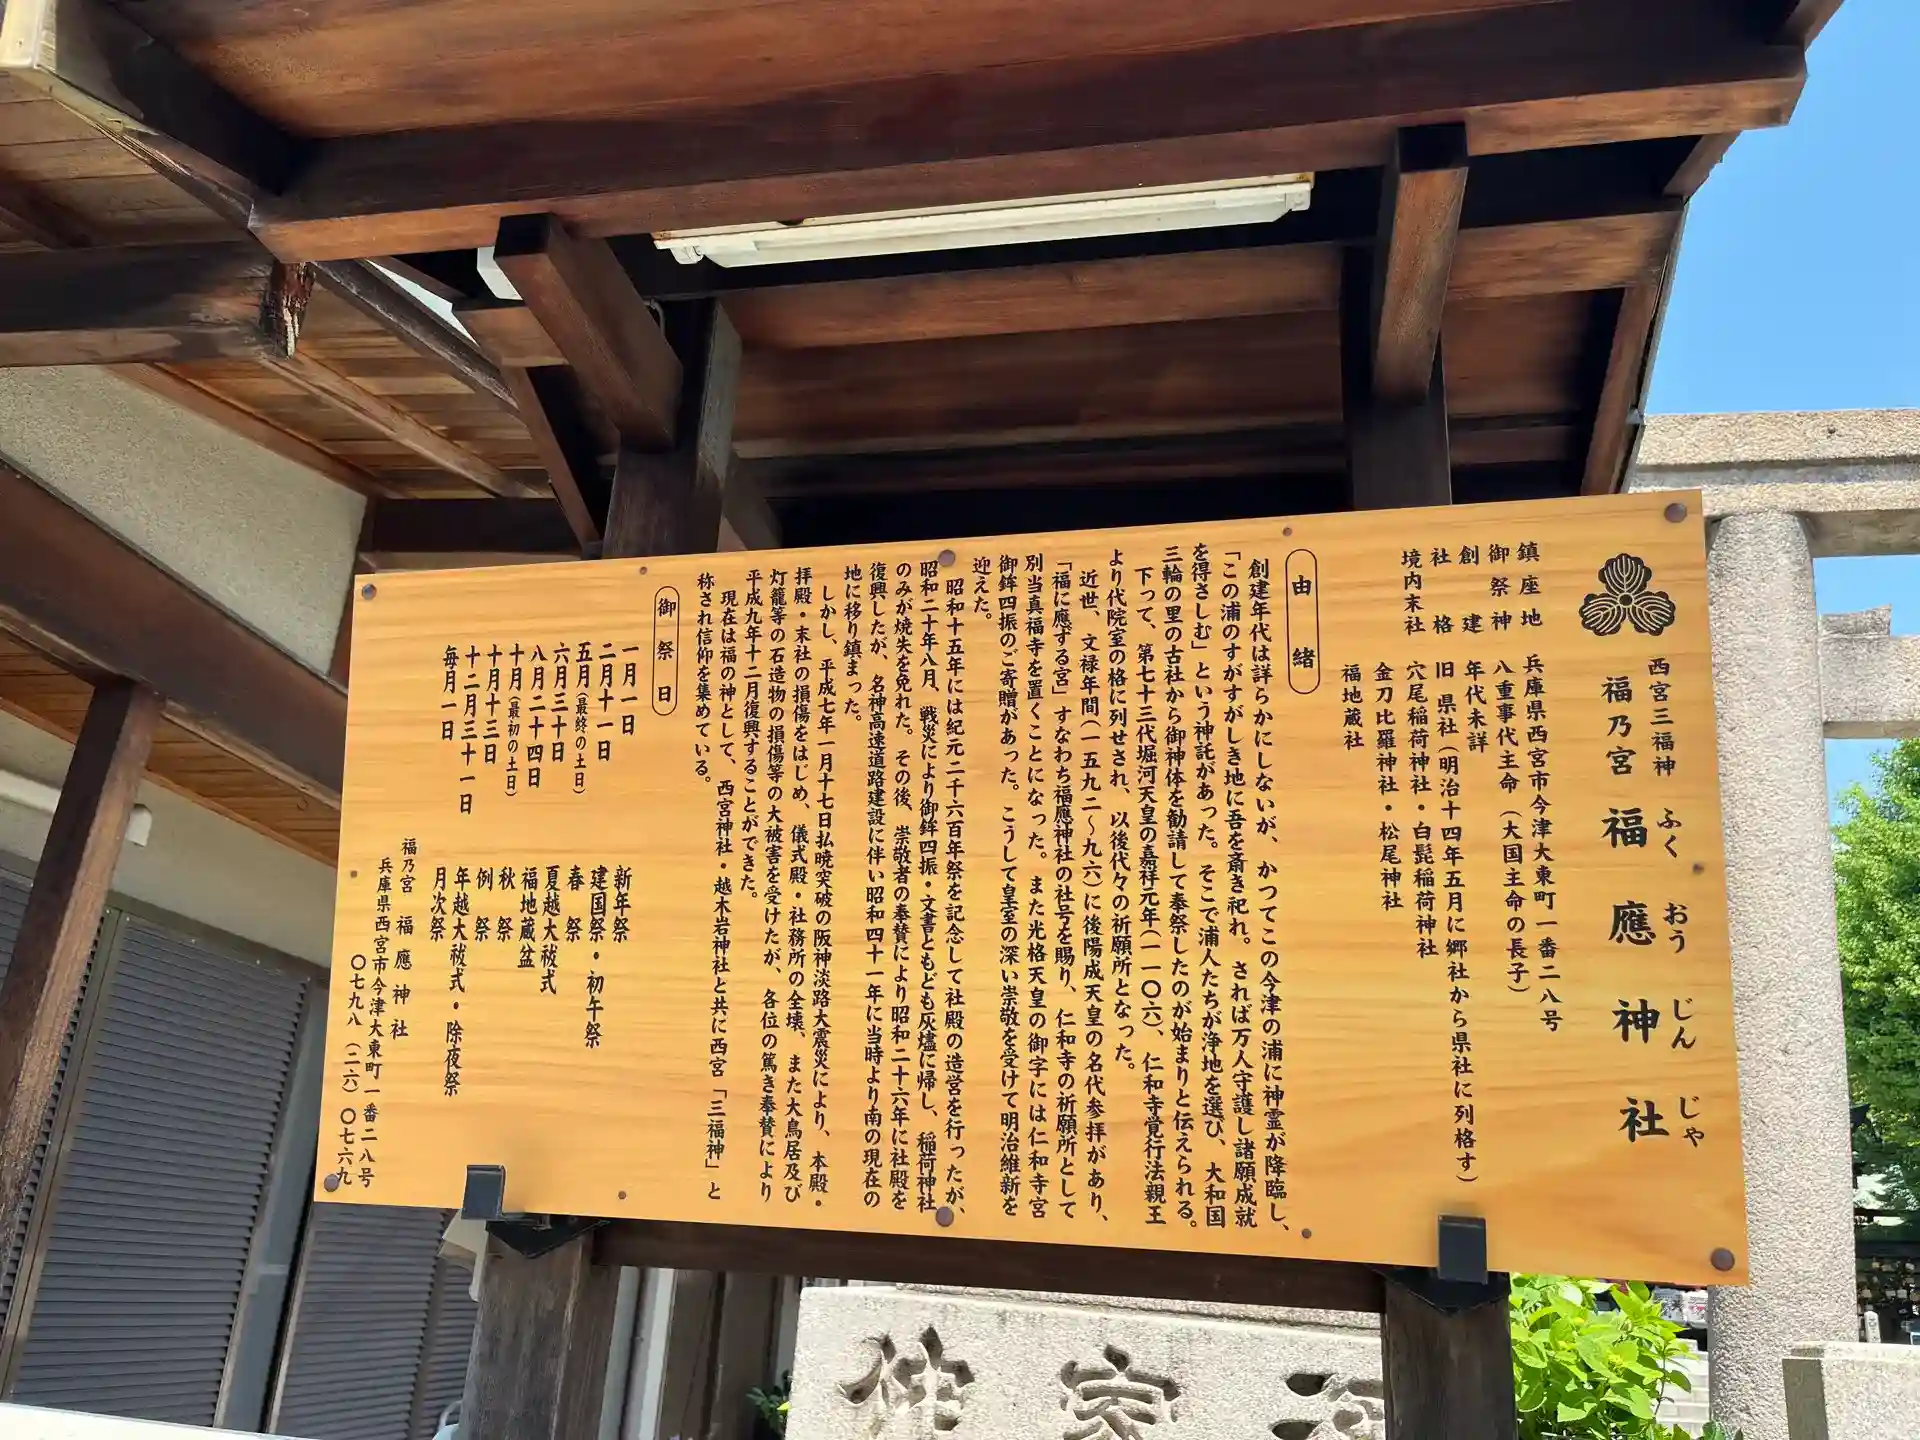 西宮三福神
福乃宮 福應神社
ふく おう じん じゃ
鎮座地 兵庫県西宮市今津大東町一番二八号
御祭神 八重事代主命（大国主命の長子）
創建 年代未詳
社格 旧 県社（明治十四年五月に郷社から県社に列格す）
境内末社 穴尾稲荷神社・白髭稲荷神社
金刀比羅神社・松尾神社
福地蔵社
由緒
創建年代は詳らかにしないが、かつてこの今津の浦に神霊が降臨し、
「この浦のすがすがしき地に吾を斎き祀れ。されば万人守護し諸願成就
を得さしむ」という神託があった。そこで浦人たちが浄地を選び、大和国
三輪の里の古社から御神体を勧請して奉祭したのが始まりと伝えられる。
下って、第七十三代堀河天皇の嘉祥元年（一一〇六）、仁和寺覚行法親王
より代院室の格に列せされ、以後代々の祈願所となった。
近世、文禄年間（一五九二～九六）に後陽成天皇の名代参拝があり、
「福に應ずる宮」すなわち福應神社の社号を賜り、仁和寺の祈願所として
別当真福寺を置くことになった。また光格天皇の御字には仁和寺宮
御鉾四振のご寄贈があった。こうして皇室の深い崇敬を受けて明治維新を
迎えた。
昭和十五年には紀元二千六百年祭を記念して社殿の造営を行ったが、
昭和二十年八月、戦災により御鉾四振・文書ともども灰燼に帰し、稲荷神社
のみが焼失を免れた。その後、崇敬者の奉賛により昭和二十六年に社殿を
復興したが、名神高速道路建設に伴い昭和四十一年に当時より南の現在の
地に移り鎮まった。
しかし、平成七年一月十七日払暁突破の阪神淡路大震災により、本殿・
拝殿・末社の損傷をはじめ、儀式殿・社務所の全壊、また大鳥居及び
灯籠等の石造物の損傷等の大被害を受けたが、各位の篤き奉賛により
平成九年十二月復興することができた。
現在は福の神として、西宮神社・越木岩神社と共に西宮「三福神」と
称され信仰を集めている。
御祭日
一月一日 新年祭
二月十一日 建国祭・初午祭
五月（最終の土日） 春祭
六月三十日 夏越大祓式
八月二十四日 福地蔵盆
十月（最初の土日） 秋祭
十月十三日 例祭
十二月三十一日 年越大祓式・除夜祭
毎月一日 月次祭
福乃宮 福應神社
兵庫県西宮市今津大東町一番二八号
〇七九八（二六）〇七六九